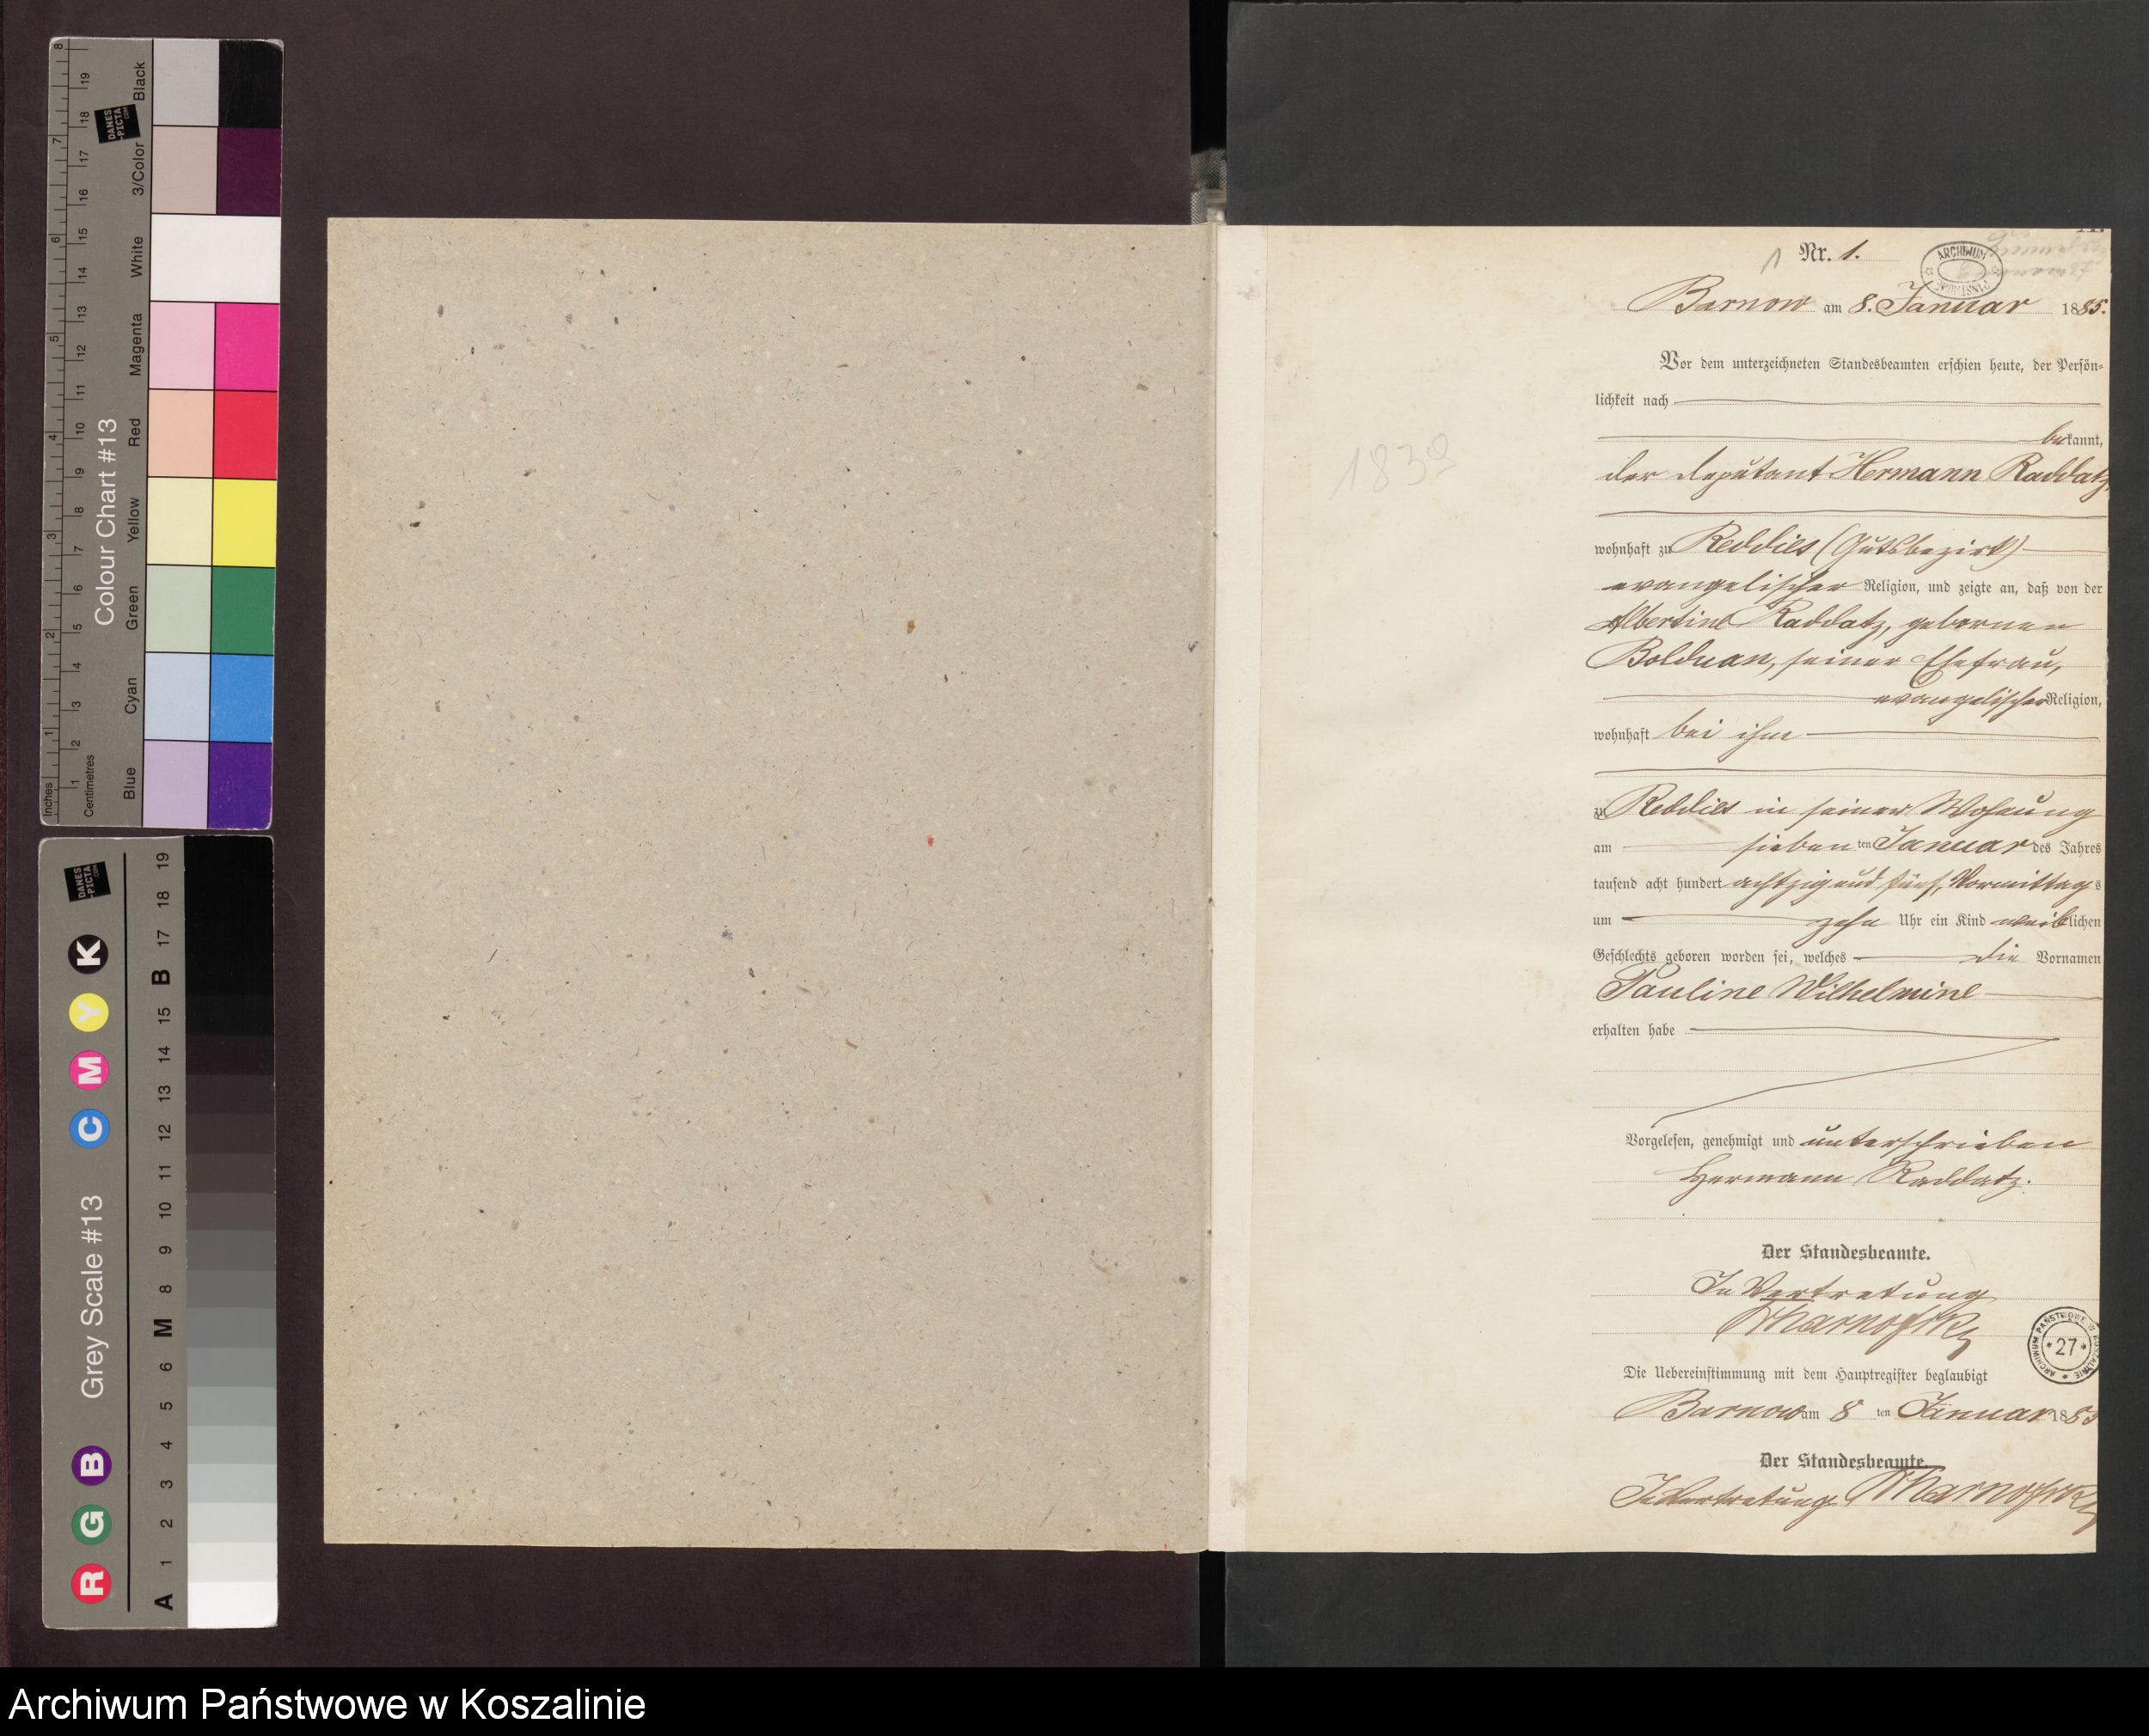 Colour Chart #13
Inches 1 2 3 4 5 6 7 8
Centimetres 1 2 3 4 5 6 7 8 9 10 11 12 13 14 15 16 17 18 19
DANES-PICTA.COM
Blue Cyan Green Yellow Red Magenta White 3/Color Black
Grey Scale #13
DANES-PICTA.COM
R G B C M Y K
A 1 2 3 4 5 6 M 8 9 10 11 12 13 14 15 B 17 18 19
1 Nr. 1.
ARCHIWUM PAŃSTWOWE
Barnow am 8. Januar 1885.
Vor dem unterzeichneten Standesbeamten erschien heute, der Persön-
lichkeit nach
bekannt,
der Deputant Hermann Raddatz,
wohnhaft zu Reddies (Gutsbezirk)
evangelischer Religion, und zeigte an, daß von der
Albertine Raddatz, gebornen
Bolduan, seiner Ehefrau,
evangelischer Religion,
wohnhaft bei ihm
zu Reddies in seiner Wohnung
am siebenten Januar des Jahres
tausend acht hundert achtzig und fünf, Vormittags
um zehn Uhr ein Kind weiblichen
Geschlechts geboren worden sei, welches die Vornamen
Pauline Wilhelmine
erhalten habe
Vorgelesen, genehmigt und unterschrieben
Hermann Raddatz.
Der Standesbeamte.
In Vertretung
Die Uebereinstimmung mit dem Hauptregister beglaubigt
Barnow am 8 ten Januar 1885
Der Standesbeamte.
In Vertretung
1830
ARCHIWUM PAŃSTWOWE W KOSZALINIE
*27*
Archiwum Państwowe w Koszalinie